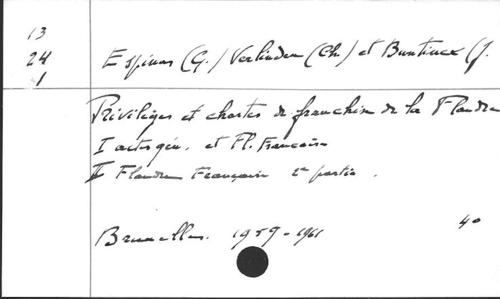 13
24
1
Espinas (G.) Verlinden (Ch.) et Buntinx (J.
Privilèges et chartes de franchise de la Flandre
I actes gén. et Fl. Francaise
II Flandre Française 2e partie.
Bruxelles. 1959-1961
4o